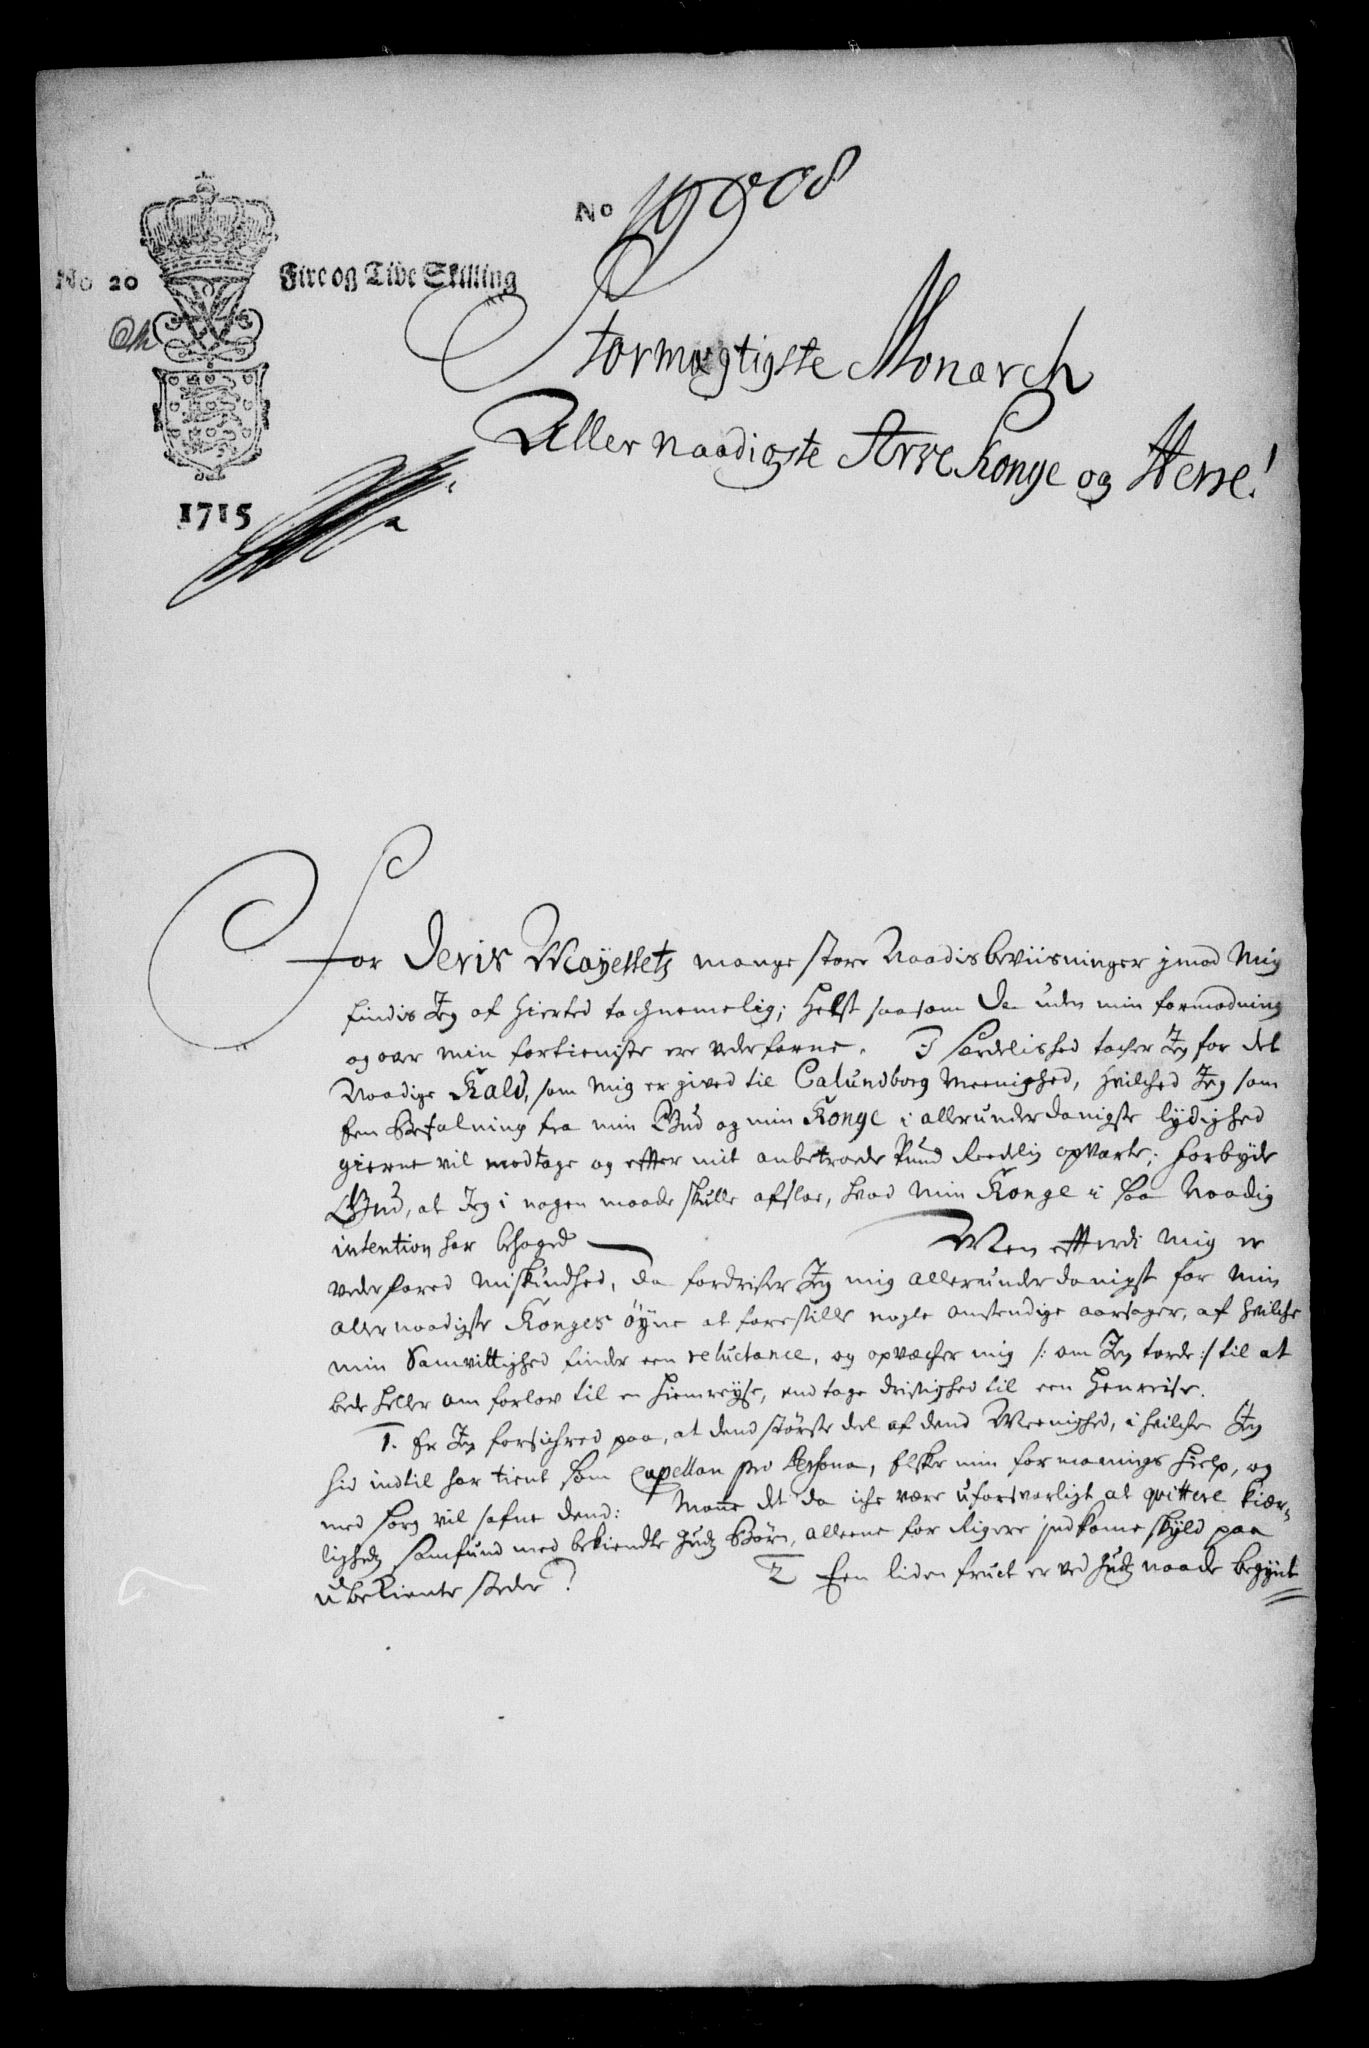 No 19008
No 20 Fire og Tive Skilling
1715
Stormægtigste Monarch
Aller naadigste Arfve Konge og Herre!
For Deris Mayestets mange store Naadis beviisninger imod Mig
findis Jeg af Hierted tachnemelig; Helst saasom De uden min formodning
og over min fortieniste ere vederfarne. I særdelished tacher Jeg for det
Naadige Kald, som Mig er gived til Calundborg Meenighed, Hvilched Jeg som
een Befalning fra min Gud og min Konge i allerunderdanigste lydighed
gierne vil modtage og efter mit anbetroede Pund Reedelig opvarte; forbyde
Gud, at Jeg i nogen maade skulle afslae, hvad Min Konge i saa Naadig
intention har behaged Men efterdi Mig er
vederfared Miskundhed, Da fordrister Jeg mig allerunderdanigst for Min
allernaadigste Konges øyne at forestille nogle omstendige aarsager, af Hvilche
min Samvittighed finder een reluctance, og opvæcher mig /: om Jeg torde :/ til at
bede heller om forlov til en Hiemreyse, end tage dristighed til een Henreise.
1. Er Jeg forsichred paa, at dend største del af dend Meenighed, i Hvilchen Jeg
hid indtil har tient som Capellan pro Persona, Elsker min formanings Hielp, og
med sorg vil safne dend: Monne det da iche være uforsvarligt at qvittere kiær-
ligheds samfund med bekiendte Guds Børn, alleene for Rigere indkome skyld paa
ubekiente steder? 2 Een liden fruct er ved Guds naade begynt